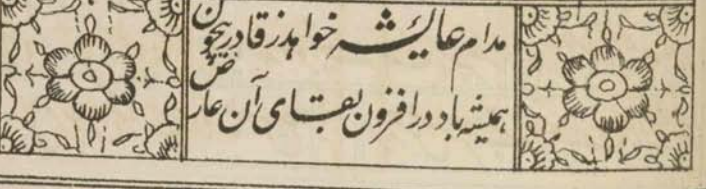 مدام عایشه خواهد ز قادر بیچون
همیشه باد در افزون بقای آن عارض